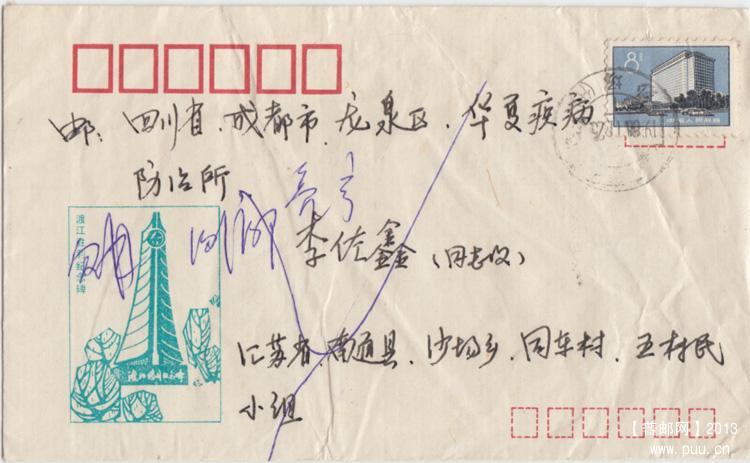 8分
中国人民邮政
邮：四川省、成都市、龙泉区、华夏疾病
防治所
李佐鑫（同志收）
渡江胜利纪念碑
江苏省、南通县、沙场乡、同车村、五村民
小组
【普邮网】2013
www.puu.cn